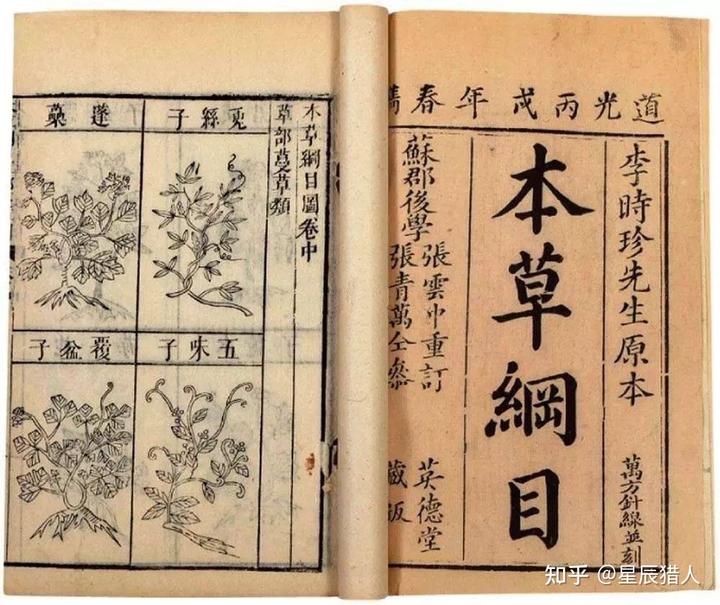 道光丙戌年春鐫
李時珍先生原本
萬方針線並刻
本草綱目
蘇郡後學
張雲中重訂
張青萬仝參
英德堂
藏板
本草綱目圖卷中
草部蔓草類
兎絲子
蓬虆
五味子
覆盆子
知乎 @星辰猎人